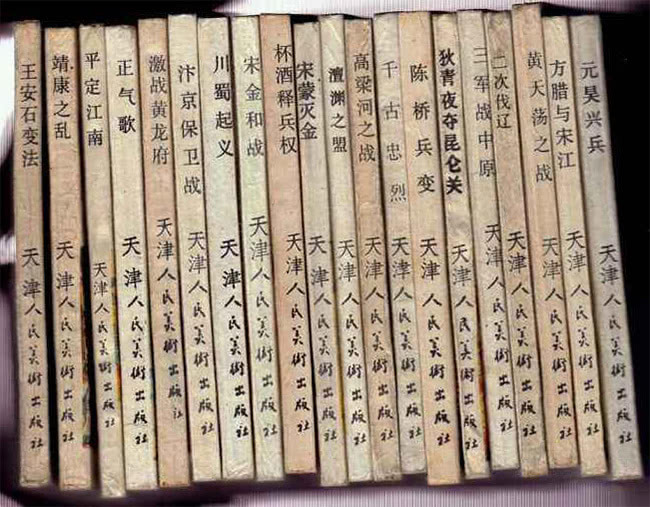 王安石变法 天津人民美術出版社
靖康之乱 天津人民美術出版社
平定江南 天津人民美術出版社
正气歌 天津人民美術出版社
激战黄龙府 天津人民美術出版社
汴京保卫战 天津人民美術出版社
川蜀起义 天津人民美術出版社
宋金和战 天津人民美術出版社
杯酒释兵权 天津人民美術出版社
宋蒙灭金 天津人民美術出版社
澶渊之盟 天津人民美術出版社
高粱河之战 天津人民美術出版社
千古忠烈 天津人民美術出版社
陈桥兵变 天津人民美術出版社
狄青夜夺昆仑关 天津人民美術出版社
三军战中原 天津人民美術出版社
二次伐辽 天津人民美術出版社
黄天荡之战 天津人民美術出版社
方腊与宋江 天津人民美術出版社
元昊兴兵 天津人民美術出版社